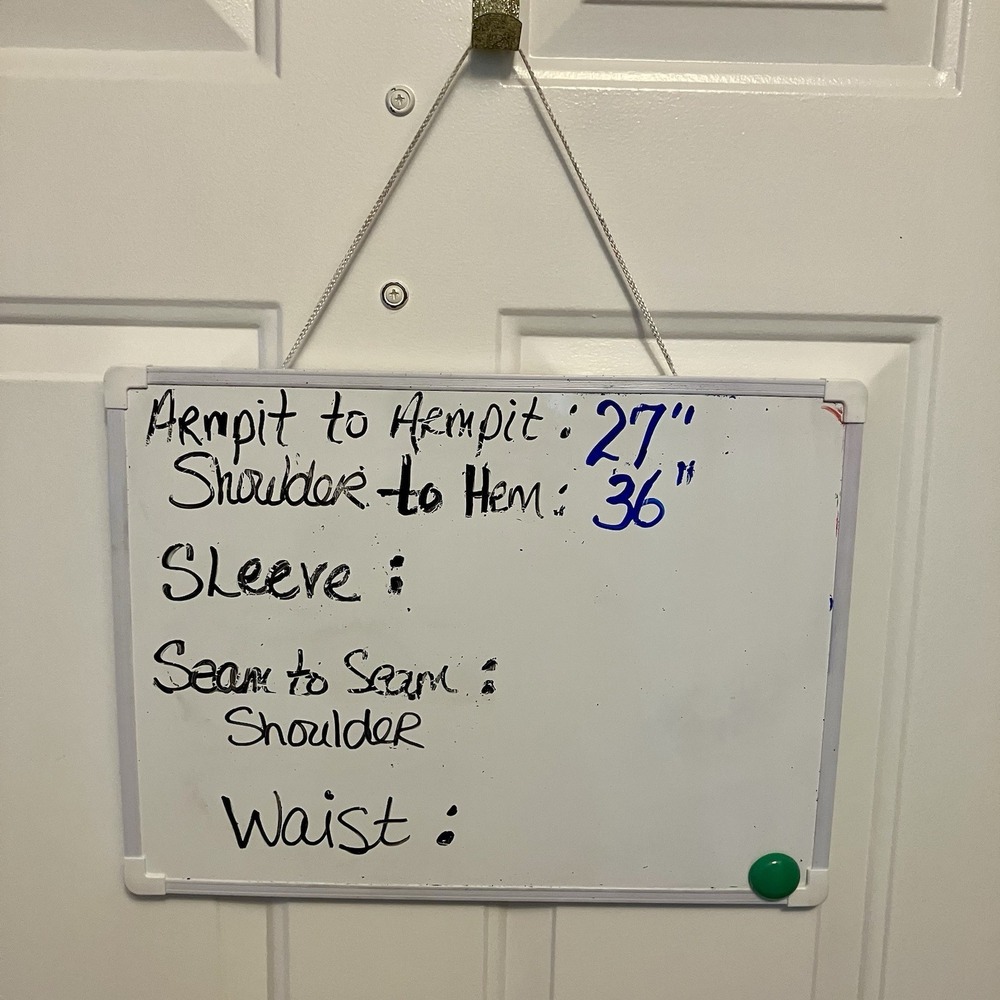 Armpit to Armpit: 27"
Shoulder to Hem: 36"
Sleeve:
Seam to Seam:
Shoulder
Waist: